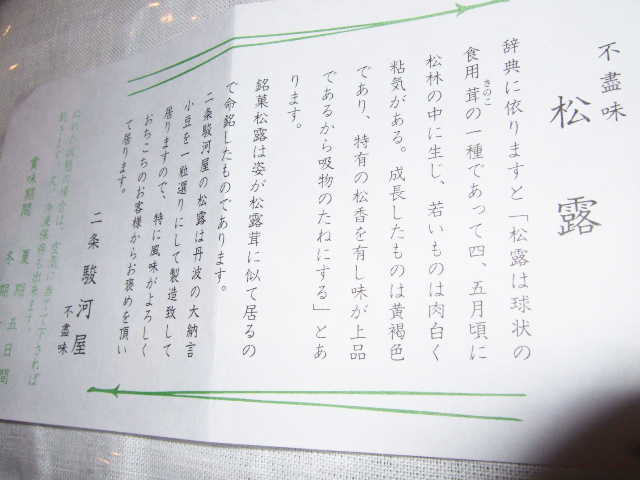 不盡味
松露
辞典に依りますと「松露は球状の
食用茸の一種であって四、五月頃に
きのこ
松林の中に生じ、若いものは肉白く
粘気がある。成長したものは黄褐色
であり、特有の松香を有し味が上品
であるから吸物のたねにする」とあ
ります。
銘菓松露は姿が松露茸に似て居るの
で命銘したものであります。
二条駿河屋の松露は丹波の大納言
小豆を一粒選りにして製造致して
居りますので、特に風味がよろしく
おちこちのお客様からお褒めを頂い
て居ります。
二条駿河屋
不盡味
ぬれた状態の場合は、空気に当て下されば
乾きます。又、冷凍保存も出来ます。
賞味期間 夏期 五日間
冬期 日間